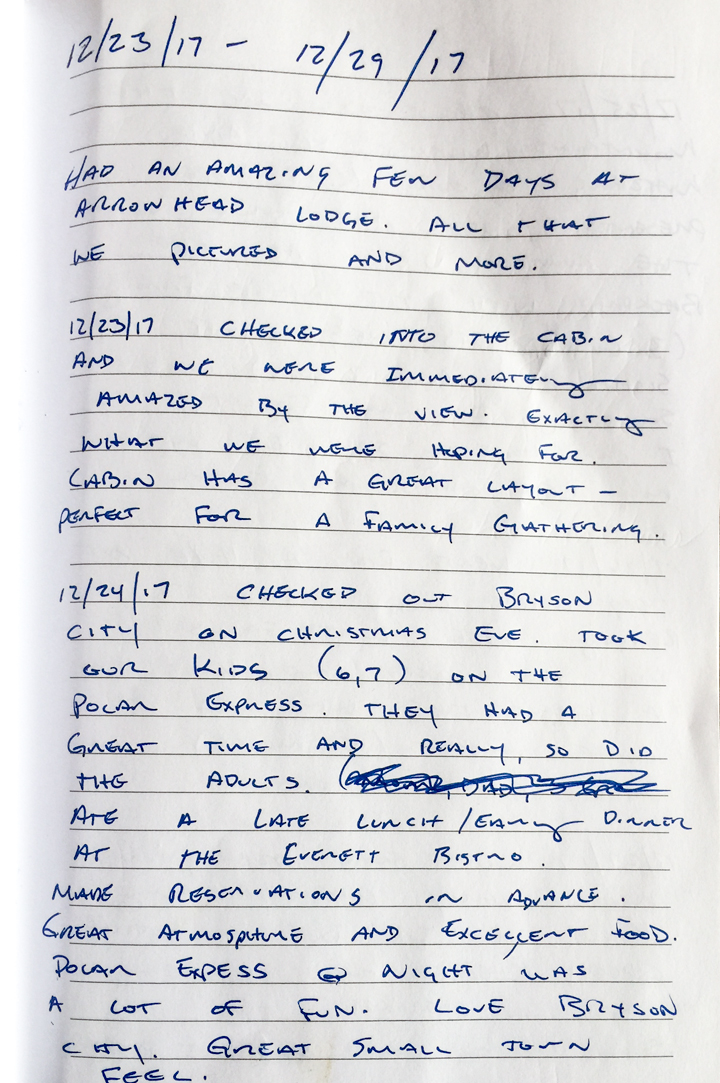 12/23/17 - 12/29/17
HAD AN AMAZING FEW DAYS AT
ARROWHEAD LODGE. ALL THAT
WE PICTURED AND MORE.
12/23/17 CHECKED INTO THE CABIN
AND WE WERE IMMEDIATELY
AMAZED BY THE VIEW. EXACTLY
WHAT WE WERE HOPING FOR.
CABIN HAS A GREAT LAYOUT -
PERFECT FOR A FAMILY GATHERING.
12/24/17 CHECKED OUT BRYSON
CITY ON CHRISTMAS EVE. TOOK
OUR KIDS (6,7) ON THE
POLAR EXPRESS. THEY HAD A
GREAT TIME AND REALLY, SO DID
THE ADULTS. (
ATE A LATE LUNCH/EARLY DINNER
AT THE EVERETT BISTRO.
MADE RESERVATIONS IN ADVANCE.
GREAT ATMOSPHERE AND EXCELLENT FOOD.
POLAR EXPESS @ NIGHT WAS
A LOT OF FUN. LOVE BRYSON
CITY. GREAT SMALL TOWN
FEEL.